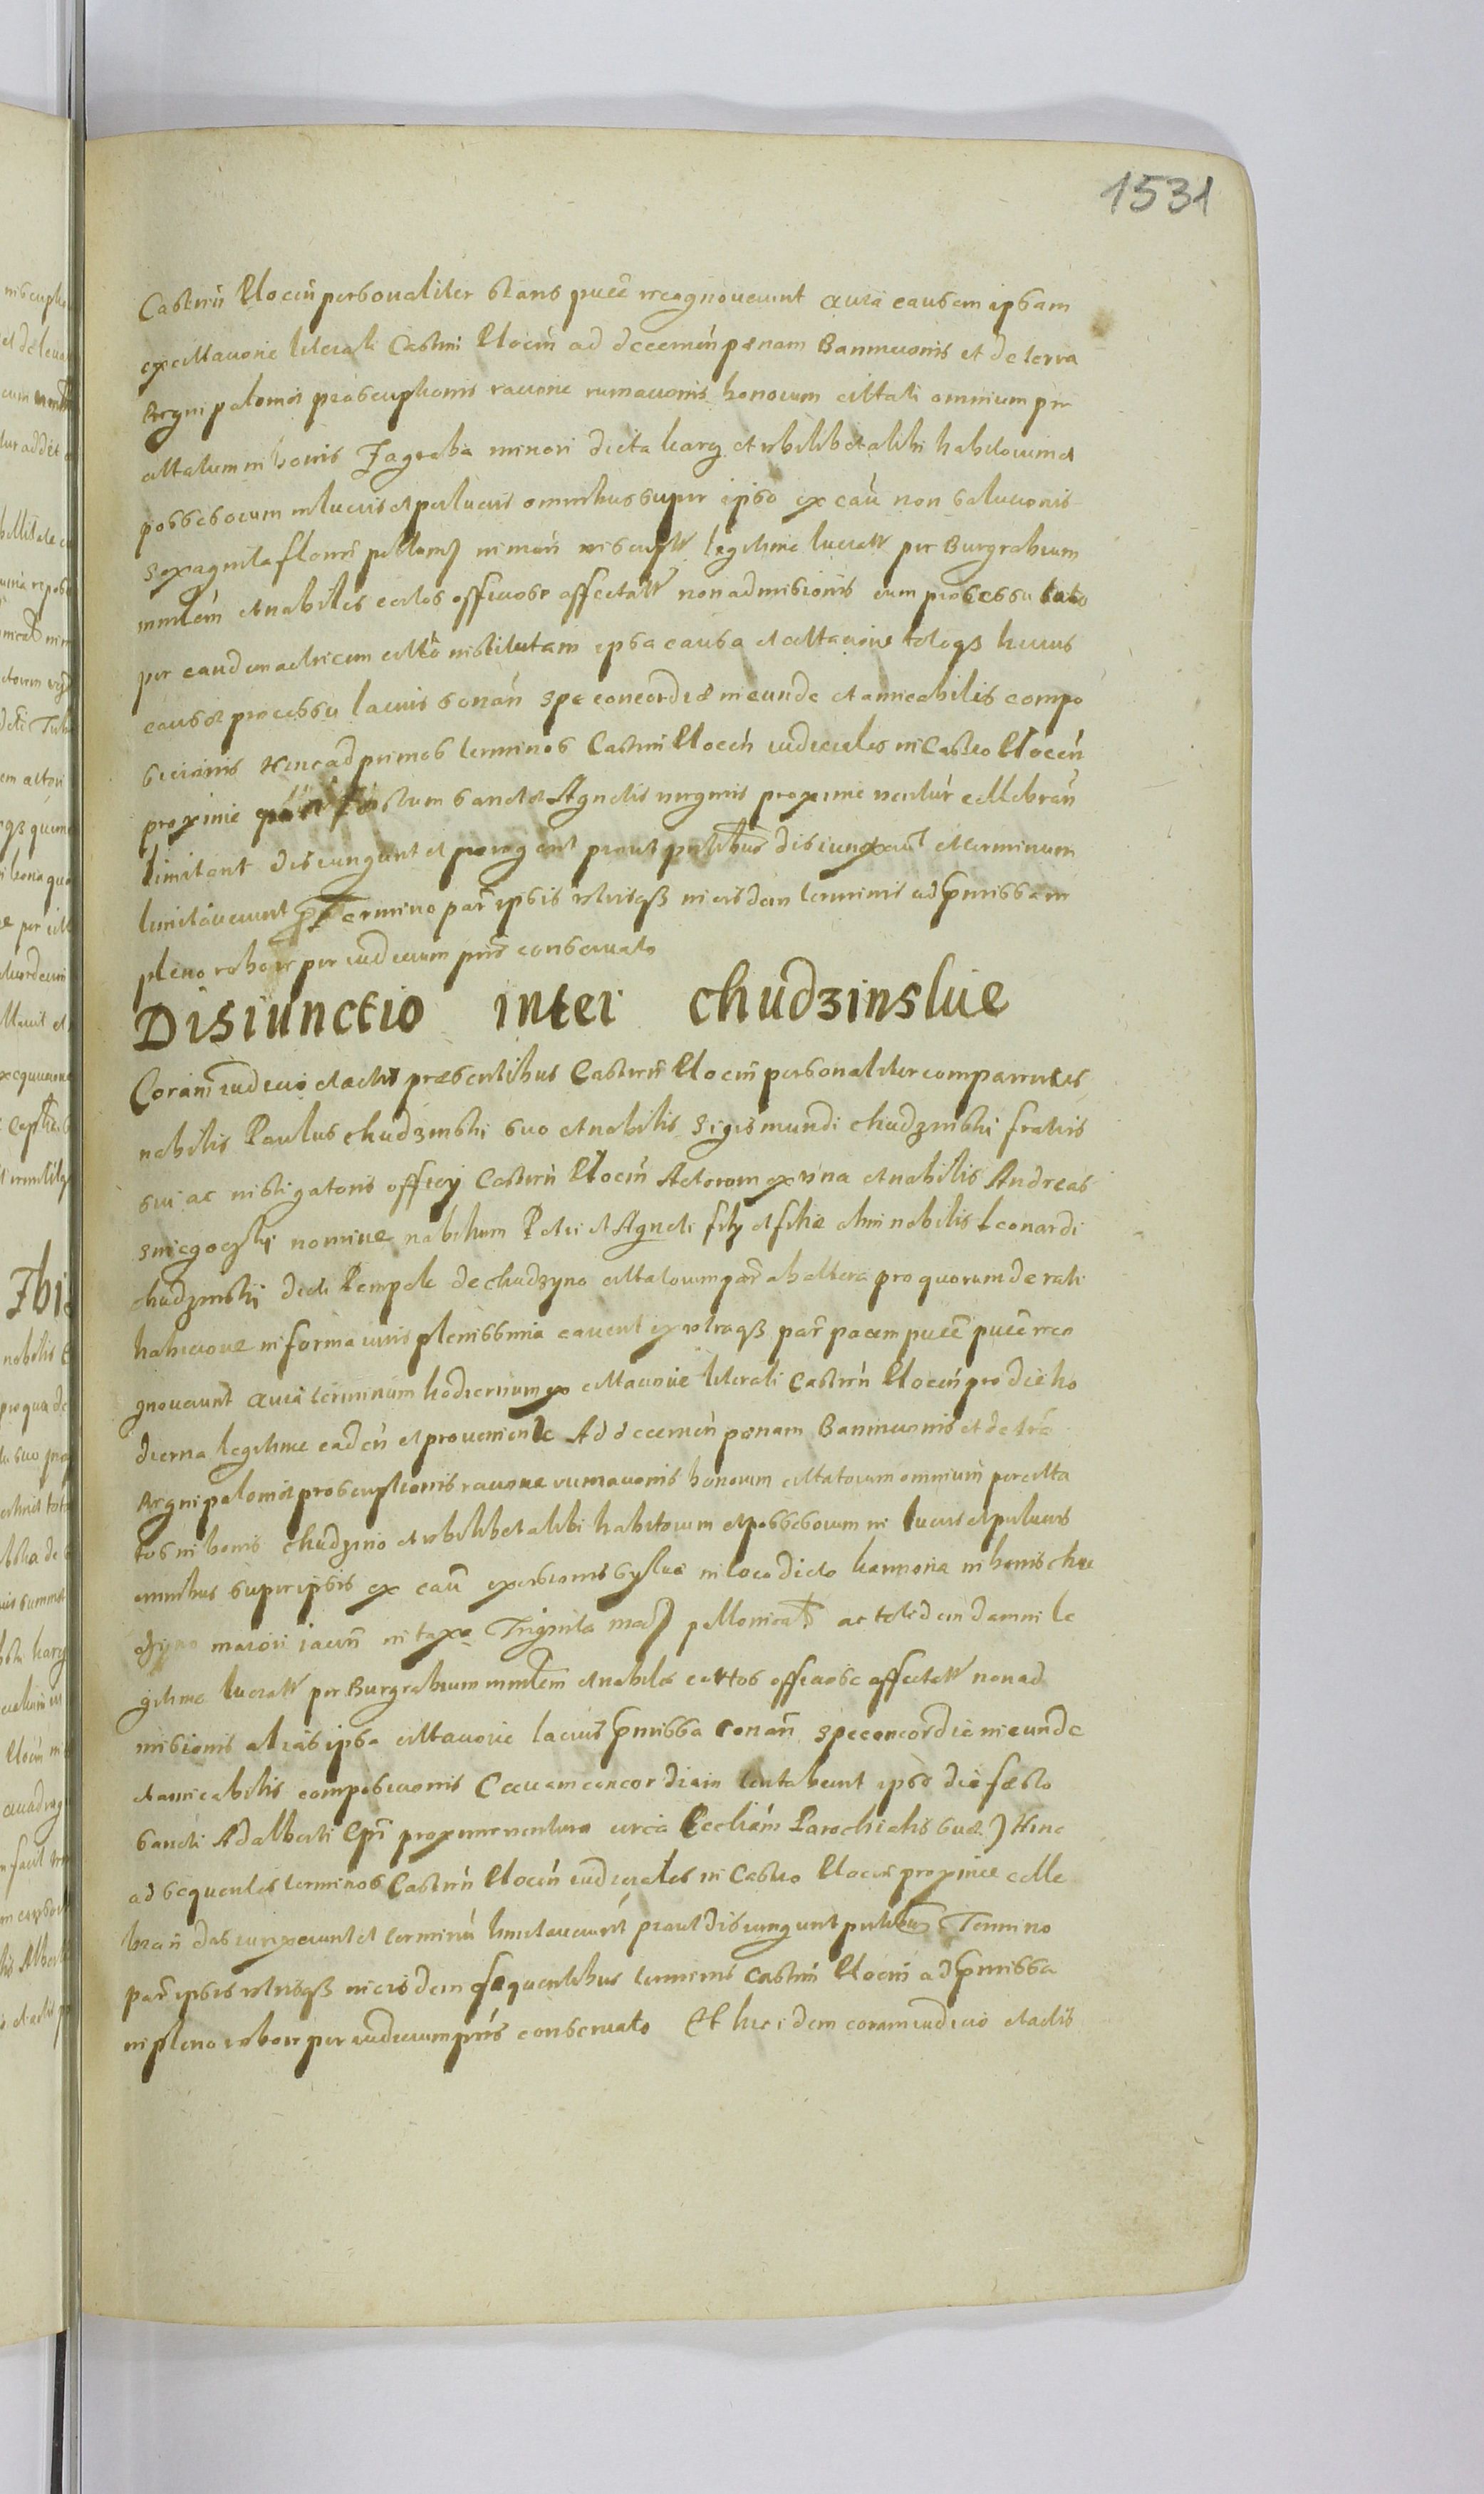 1531
Castrñ Plocen personaliter stans puce recognoverunt quia causam ipsam
ex cittatione literali Castrñ Plocen ad decernen pænam Bannitionis et de terra
Regni poloniæ proscriptionis ratione rumationis bonorum cittati omnium per
cittatum in bonis Zagroba minori dicta karg et ubilibet alibi habitorum et
possessorum in lucris et perlucris omnibus super ipso ex cau non solutionis
sexaginta floreñ legitime lucratt per Burgrabium
mnlem et nobiles certos officiose affectatt non admissionis cum processu lato
per eandem actricem institutam ipsa causa et cittatione totoqз huius
causæ processu lacius sonañ spe concordiæ ineundæ et amicabilis compo
sicionis Hinc ad primos terminos Castrñ Plocen iudiciales in Castro Plocen
proxime post festum sanctæ Agnetis virginis proxime ventur cellebrañ
limitant disiungunt et prorogant prout partibus disiunxerunt et terminum
limitaverunt termino par ipsis utrisqз in eisdem terminis ad pmissam
pleno robore per iudicium pñs conservato
Disiunctio inter chudzinskie
Coram iudicio et actis præsentibus Castrñ Plocen personaliter comparentes
nobilis Paulus chudzinski suo et nobilis Sigismundi chudzinski fratris
sui ac instigatoris officij Castrñ Plocen Actorum ex una et nobilis Andreas
sniegoczki nomine nobilium Petri et Agneti filÿ et filiæ olim nobilis Leonardi
chudzinskj dicti Pempek de chudzyno cittatorum par ab altera pro quorum de rati
habitione in forma iuris plenissima cavent ex utraqз par pacem puce puce reco
gnoverunt quia terminum hodiernum ex cittatione literali Castrñ Plocen pro die ho
dierna legitime caden et proveniente Ad decernen pænam Bannitionis et de tra
Regni poloniæ proscriptionis ratione rumationis bonorum cittatorum omnium per citta
tos in bonis chudzino et ubilibet alibi habitorum et possessorum in lucris et perlucris
omnibus super ipsis ex cau sylvæ in loco dicto in bonis chu
dzyno maiori iacen in taxa Triginta polonicat ac totidem damni le
gitime lucratt per Burgrabium mnlem et nobiles certos officiose affectatt non ad
missionis alias ipsa cittatione lacius pmissa sonañ spe concordiæ ineundæ
et amicabilis compositionis (quam concordiam tentabunt ipso die festo
Sancti Adalberti Epi proxime venturo circa Eccliam Parochialis suæ) Hinc
ad sequentes terminos Castrñ Plocen iudiciales in Castro Plocen proxime celle
brañ disiunxerunt et terminũ limitaverunt prout disiungunt partibus Termino
par ipsis utrisqз in eisdem sequentibus terminis Castrñ Plocen ad pmissa
in pleno robore per iudicium pñs conservato Et hic idem coram iudicio et actis